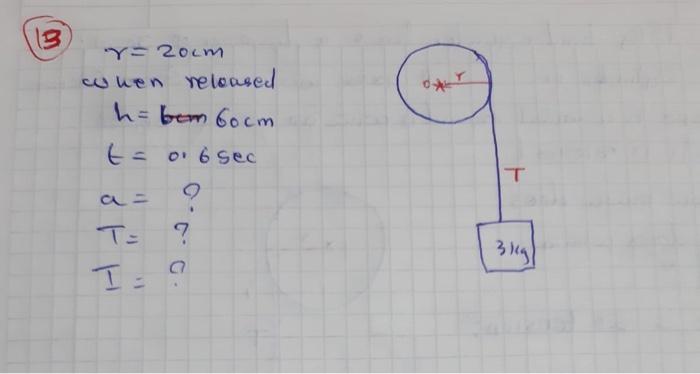 13
r = 20cm
when released
h = 60cm
t = 0.6 sec
a = ?
T = ?
I = ?
o r
T
3 kg